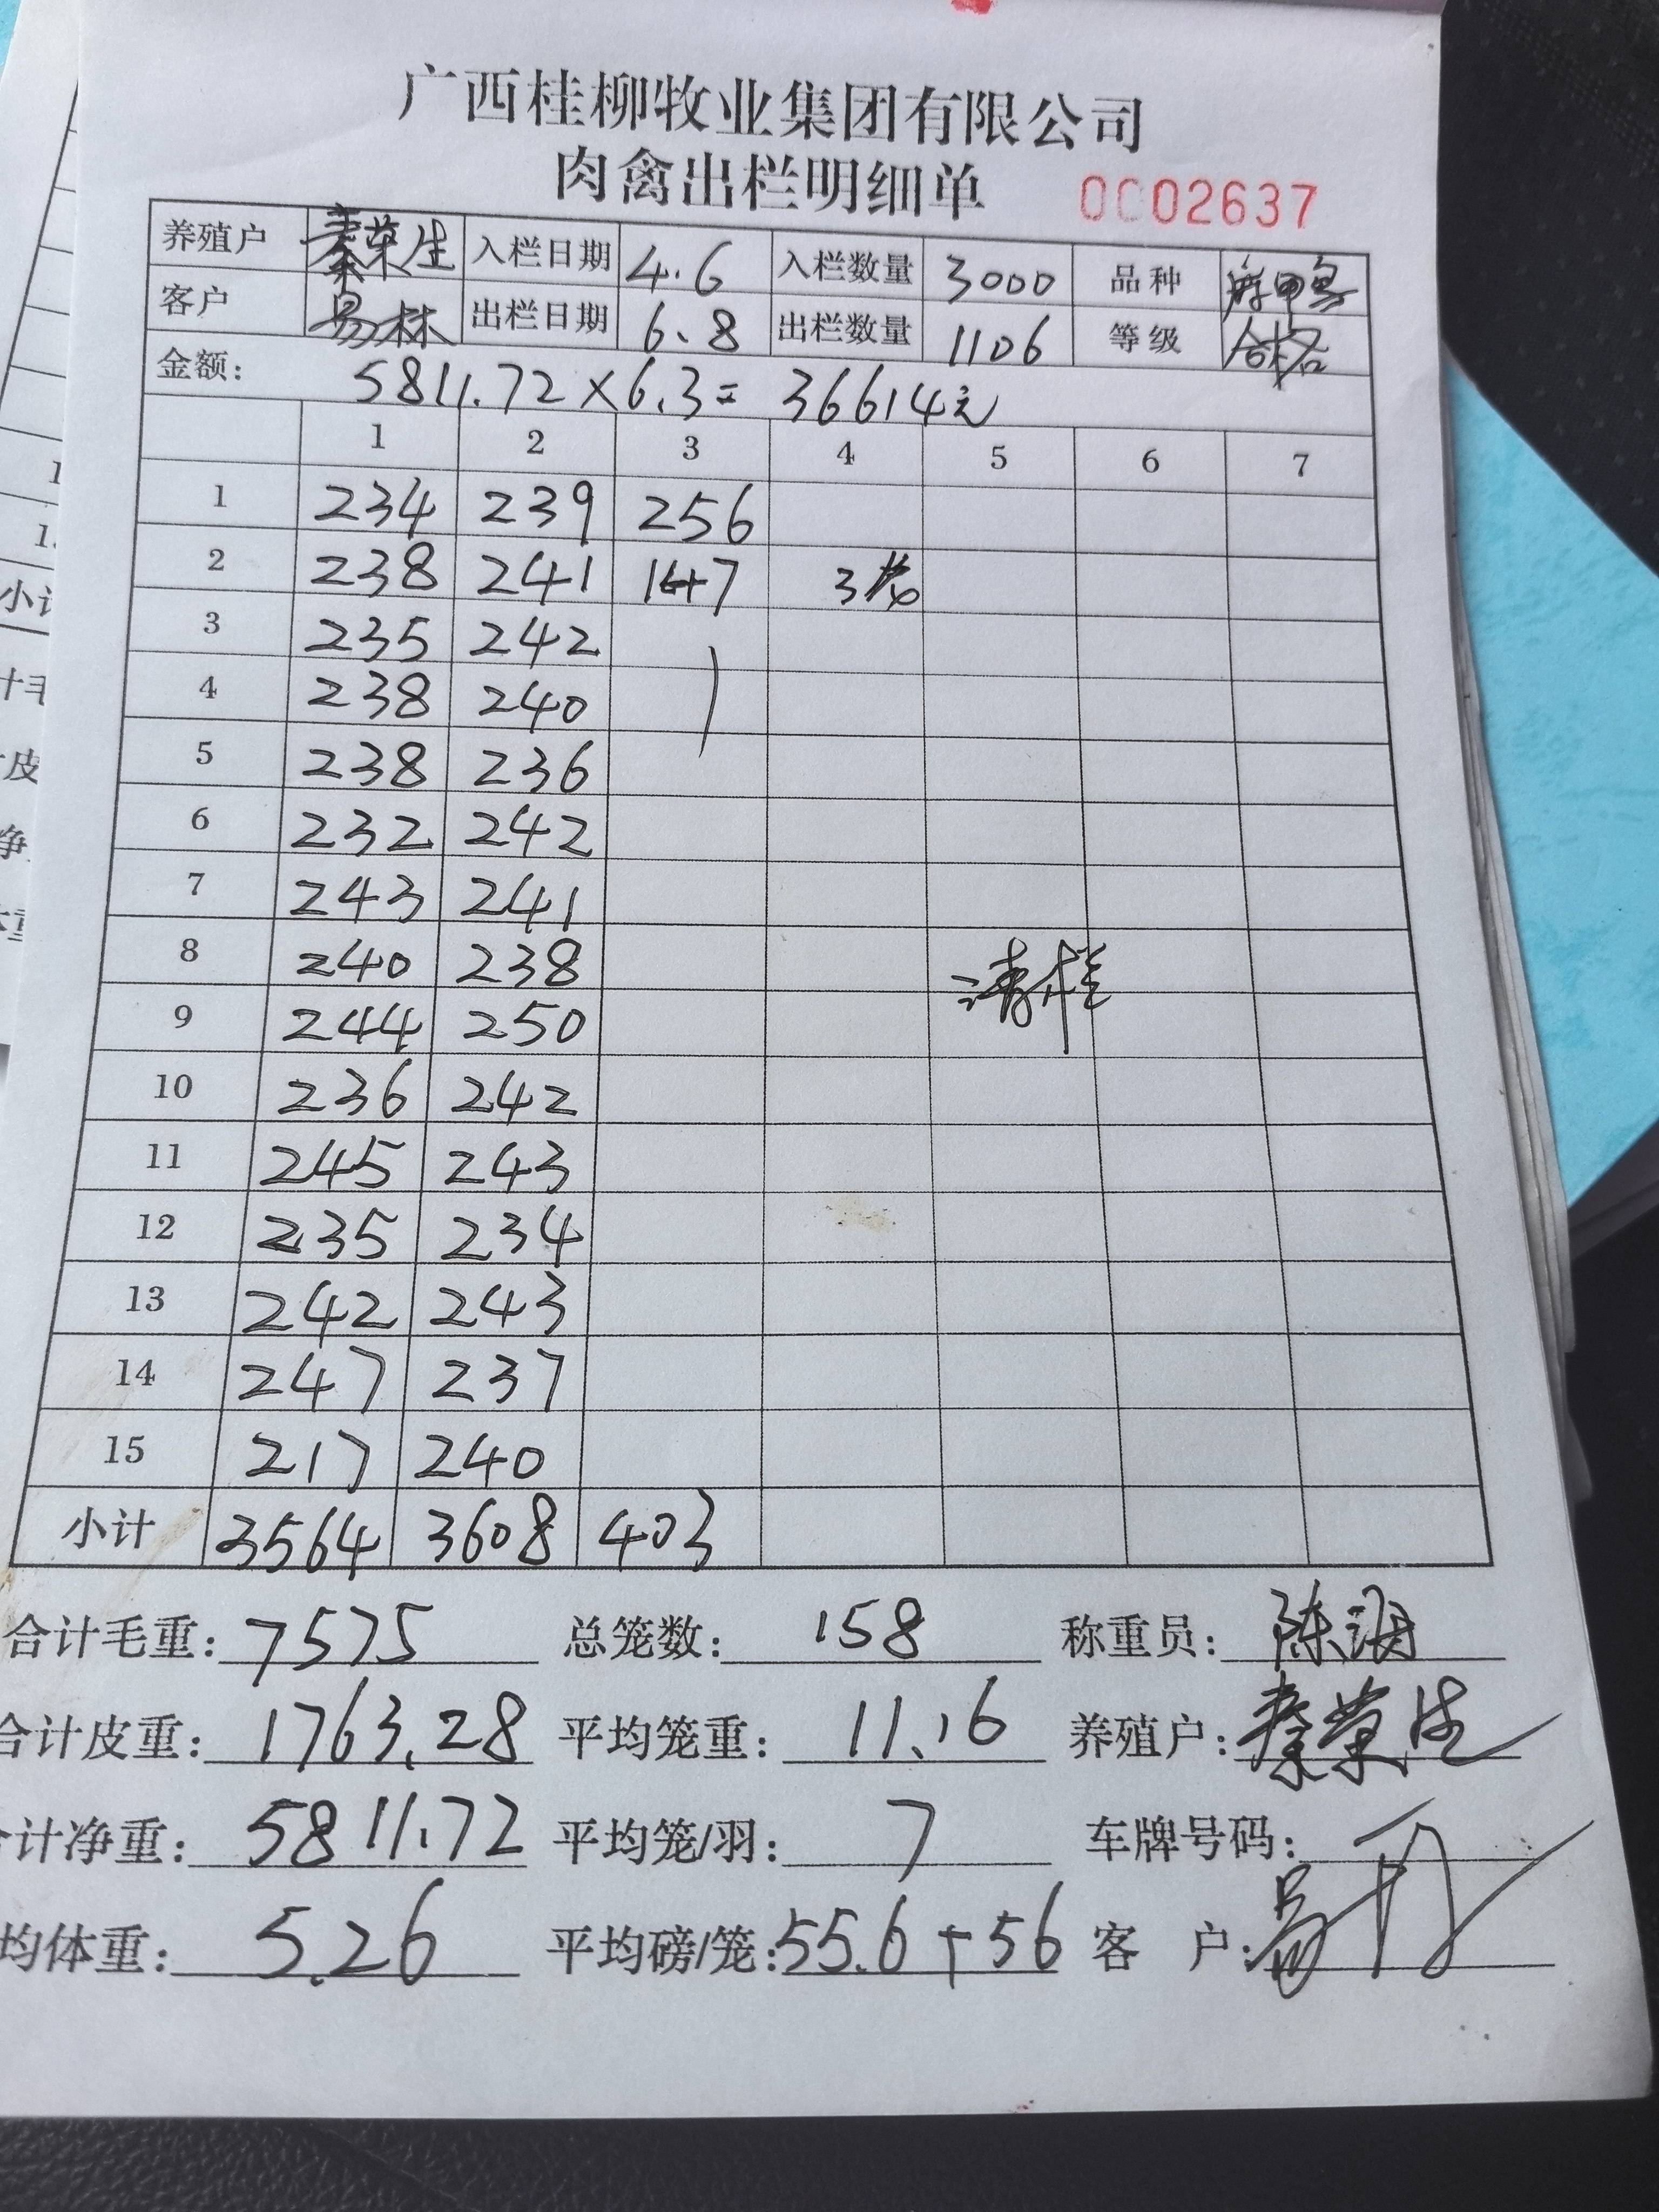 广西桂柳牧业集团有限公司
肉禽出栏明细单 0002637
养殖户 秦荣生 入栏日期 4.6 入栏数量 3000 品种 麻鸭
客户 易林 出栏日期 6.8 出栏数量 1106 等级 合格
金额: 5811.72×6.3=36614元
1 2 3 4 5 6 7
1 234 239 256
2 238 241 147 3笼
3 235 242
4 238 240
5 238 236
6 232 242
7 243 241
8 240 238 清栏
9 244 250
10 236 242
11 245 243
12 235 234
13 242 243
14 247 237
15 217 240
小计 3564 3608 403
合计毛重: 7575 总笼数: 158 称重员: 陈
合计皮重: 1763.28 平均笼重: 11.16 养殖户: 秦荣生
计净重: 5811.72 平均笼/羽: 7 车牌号码:
均体重: 5.26 平均磅/笼: 55.6+56 客 户:
1
1
小计
计毛
皮
净